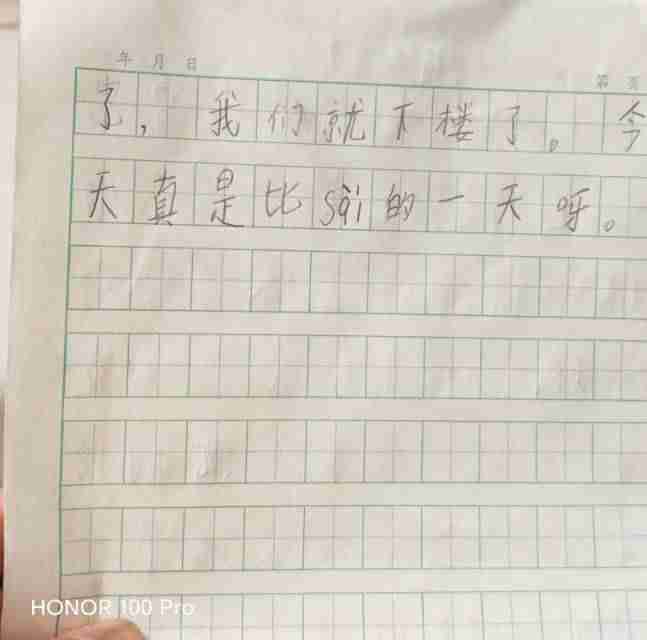 年 月 日
第 页
了，我们就下楼了。今
天真是比sài的一天呀。
HONOR 100 Pro